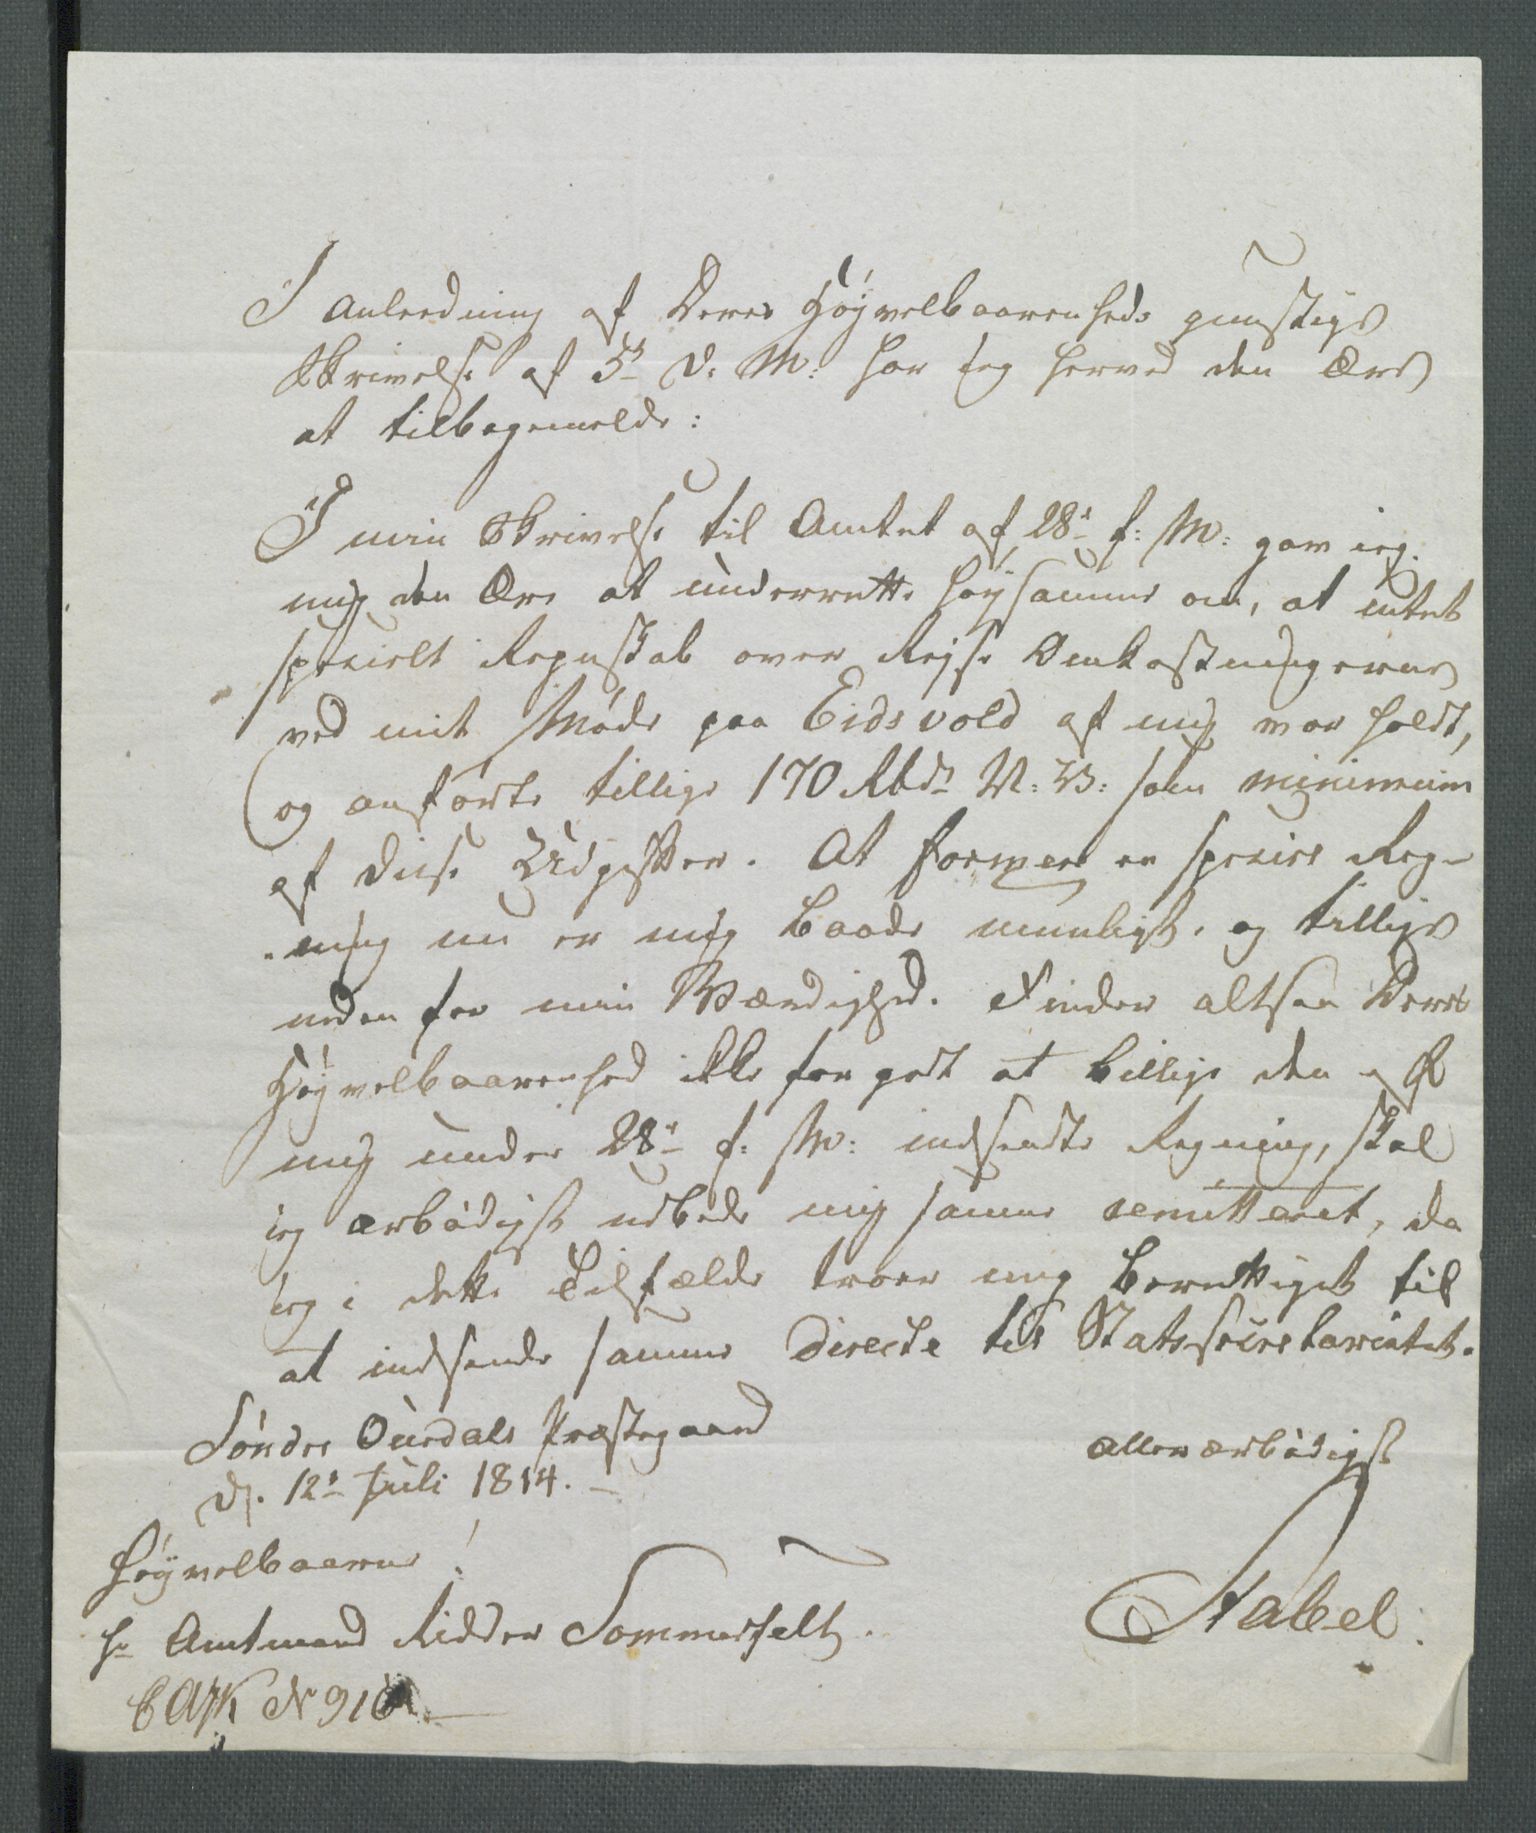 I Anledning af Deres Høyvelbaarenheds gunstige
Skrivelse af 5t d: M: har jeg herved den Ære
at tilbagemelde:
I min Skrivelse til Amtet af 28d f: M: gav jeg
mig den Ære at underrette Høysamme om, at intet
specielt Regnskab over Rejse Omkostningerne
ved mit Møde paa Eidsvold af mig var holdt,
og anførte tillige 170 Rbdr N: V: som minimum
af disse Udgifter. At formere en speciel Reg-
ning nu er mig baade umuligt og tillige
neden for min Værdighed. Finder altsaa Deres
Høyvelbaarenhed ikke for godt at billige den af
mig under 28d f: M: indsendte Regning, skal
jeg ærbødigst udbede mig samme remitteret, da
jeg i dette Tilfælde troer mig berettiget til
at indsende samme directe til Statssecretariatet.
Søndre Ourdals Præstegaard
d. 12t Juli 1814.
allerærbødigst
Høyvelbaarne!
Hr Amtmand Ridder Sommerfelt.
Stabel.